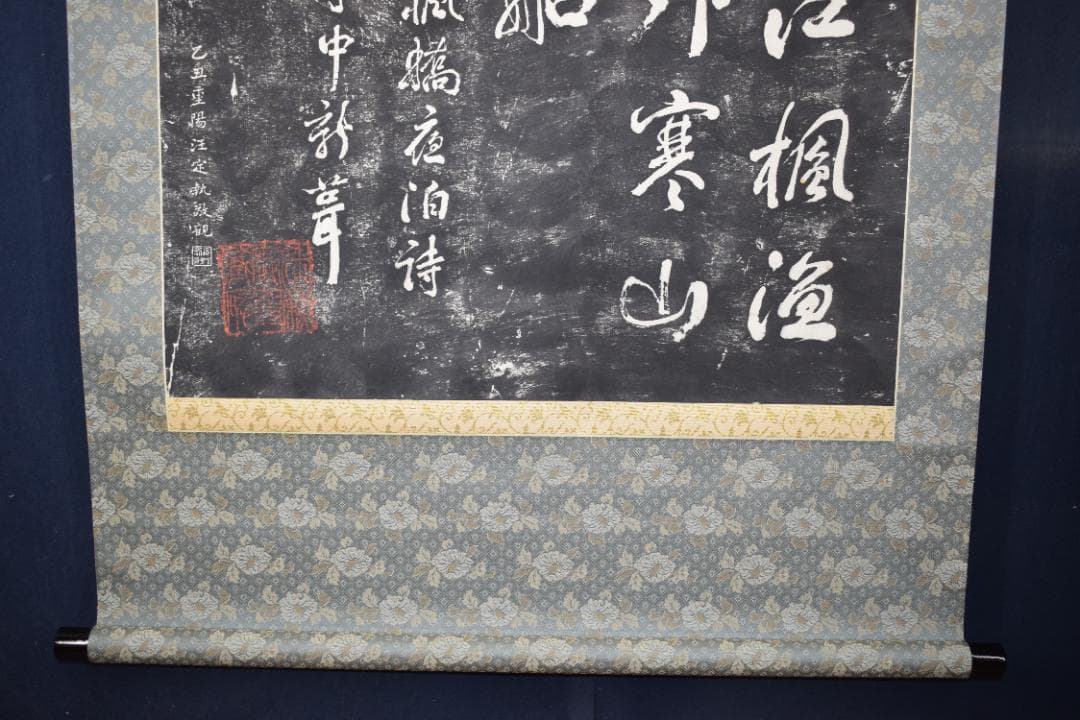 江楓漁
外寒山
船
楓橋夜泊詩
寺中新葺
乙丑重陽汪定執敬觀